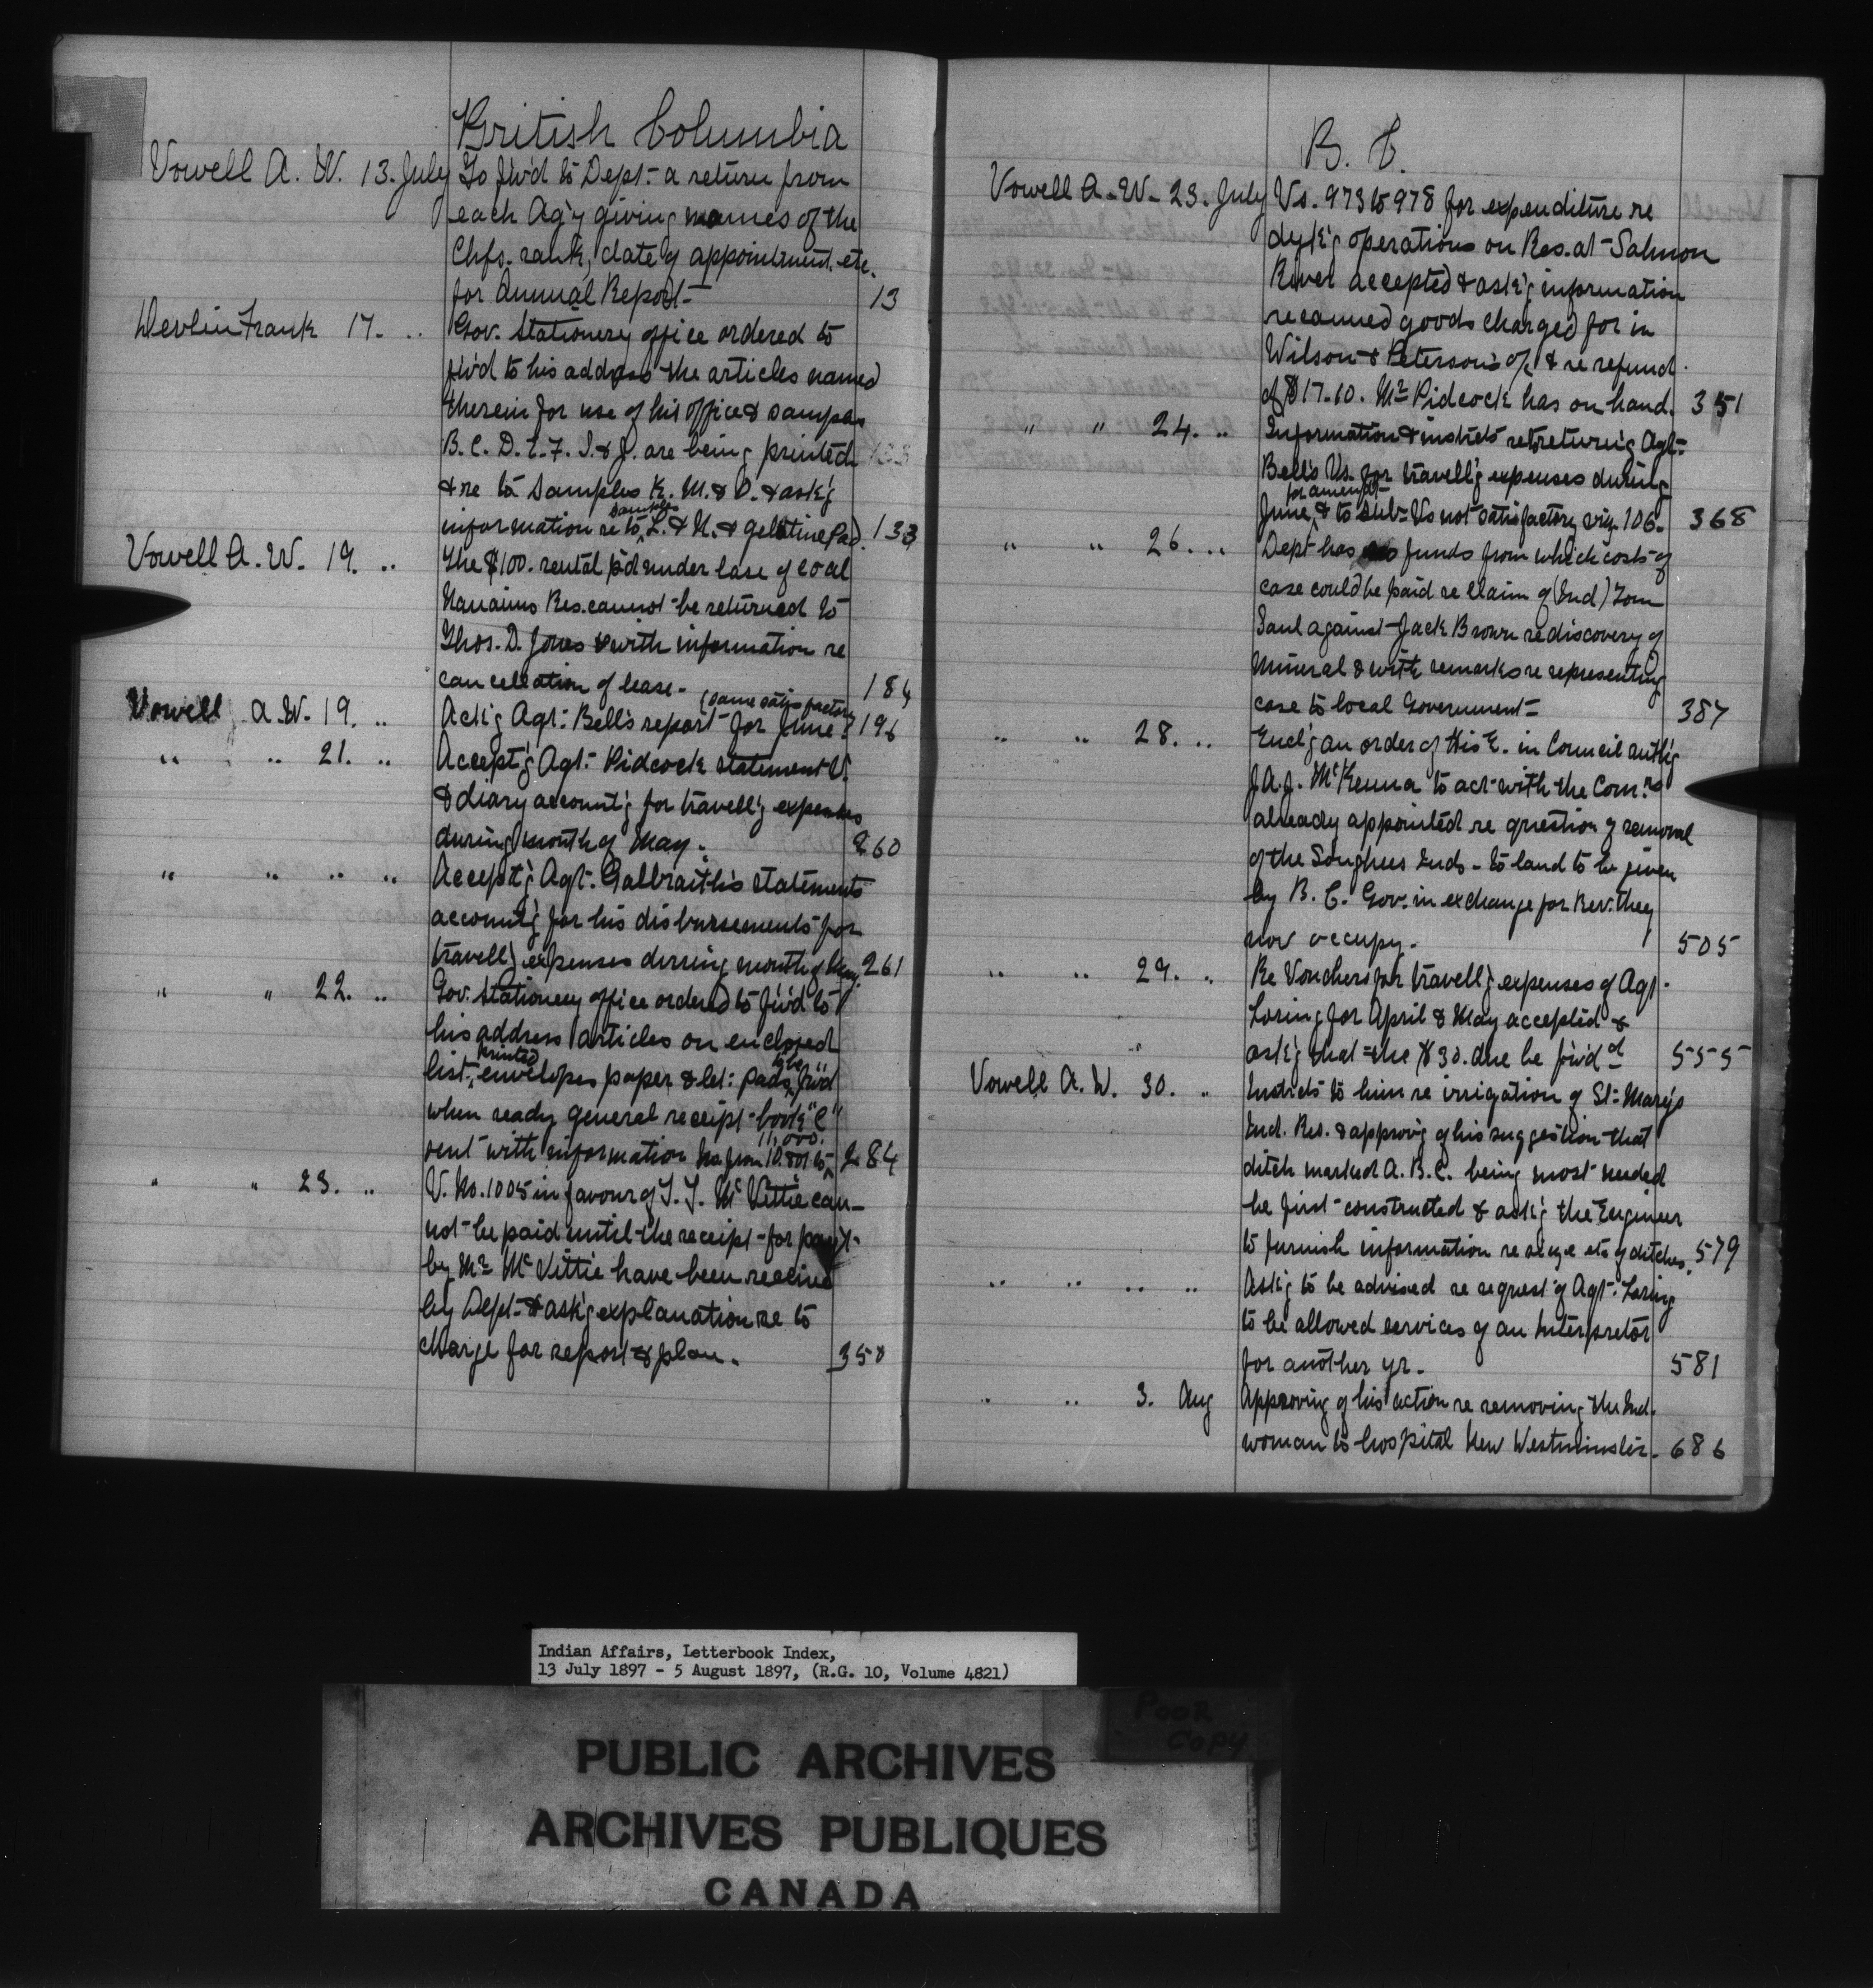 British Columbia
Vowell A. W. 13. July To f'w'd to Dept. a return from
each Ag'y giving names of the
Chfs. rank, date of appointment etc.
for Annual Report- 13
Devlin Frank 17. .. Gov. Stationery office ordered to
f'w'd to his address the articles named
therein for use of his office & samples
B. C. D. E. F. I. & J. are being printed
& re to samples K. M. & O. & ask'g
information re to samples L. & N. & gelatine Pad. 133
Vowell A. W. 19. .. The $100. rental p'd under lase of coal
Nanaimo Res. cannot be returned to
Thos. D. Jones & with information re
cancellation of lease- 184
Vowell A. W. 19. .. Act'g Agt. Bell's report for June. (same satisfactory 196
" .. 21. .. Accept'g Agt. Pidcock statement V.
& diary account'g for travell'g expenses
during month of May. 260
" .. .. .. Accept'g Agt. Galbraith's statements
account'g for his disbursements for
travell'g expenses during month of May. 261
" " 22. .. Gov. Stationery office ordered to f'w'd to
his address articles on enclosed
list, printed envelopes paper & let: pads to be f'w'd
when ready general receipt book "C"
sent with information No. from 10.801 to 11,000. 284
" " 23. .. V. No. 1005 in favour of T. T. McVittie can-
not be paid until the receipt for paym't
by Mr McVittie have been received
by Dept. & ask'g explanation re to
charge for report & plan. 350
B. C.
Vowell A. W. 23. July Vs. 973 to 978 for expenditure re
dyk'g operations on Res. at Salmon
River accepted & ask'g information
re canned goods charged for in
Wilson & Peterson's a/c & re refund
of $17.60. Mr Pidcock has on hand. 351
" " 24. .. Information & instrcts re returng Agt.
Bell's Vs. for travell'g expenses during
June, for amendt & to sub. Vs not satisfactory viz. 106. 368
" " 26. .. Dept has no funds from which costs of
case could be paid re claim of (Ind) Tom
Saul against Jack Brown re discovery of
Mineral & with remarks re representing
case to local Government- 387
.. " 28. .. Encl'g an order of His E. in Council auth'g
J. A. J. McKenna to act with the Com.rs
already appointed re question of removal
of the Songhees Inds. to land to be given
by B. C. Gov. in exchange for Res. they
now occupy. 505
.. " 29. .. Re Vouchers for travell'g expenses of Agt.
Loring for April & May accepted &
ask'g that the $30. due be f'w'd 555
Vowell A. W. 30. .. Instrcts to him re irrigation of St. Mary's
Ind. Res. & approv'g of his suggestion that
ditch marked A. B. C. being most needed
be first constructed & ask'g the Engineer
to furnish information re size etc of ditches. 579
.. .. .. .. Ask'g to be advised re request of Agt. Loring
to be allowed services of an Interpretor
for another yr. 581
.. .. 3. Aug Approving of his action re removing the Ind.
woman to hospital New Westminster. 686
Indian Affairs, Letterbook Index,
13 July 1897 - 5 August 1897, (R.G. 10, Volume 4821)
POOR
COPY
PUBLIC ARCHIVES
ARCHIVES PUBLIQUES
CANADA